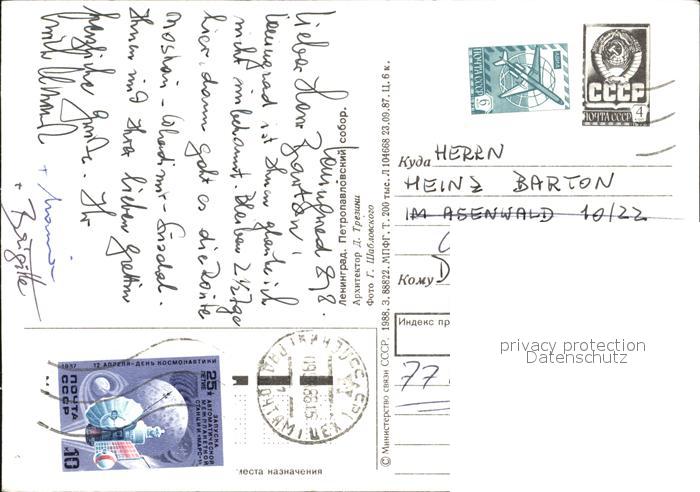 Leningrad 8/8.
Lieber Herr Barton!
Leningrad ist Ihnen glaube ich
nicht unbekannt. Bleiben 2 1/2 Tage
hier, dann geht es die Route
Moskau - Wladimir - Susdal.
Ihnen und Ihrer lieben Gattin
herzliche Grüße. Ihr
+ Brigitte
Ленинград. Петропавловский собор.
Архитектор Д. Трезини
Фото Г. Шабловского
© Министерство связи СССР. 1988. З. 88822. МПФГ. Т. 200 тыс. Л 104668 23.09.87. Ц. 6 к.
6
СССР
ПОЧТА СССР 4
Куда HERRN
HEINZ BARTON
IM ASENWALD 10/22
Кому D
Индекс пр
77
privacy protection
Datenschutz
места назначения
1987 12 АПРЕЛЯ-ДЕНЬ КОСМОНАВТИКИ
ПОЧТА СССР 10
25 ЛЕТИЕ
ЗАПУСКА
АВТОМАТИЧЕСКОЙ
МЕЖПЛАНЕТНОЙ
СТАНЦИИ «МАРС-1»